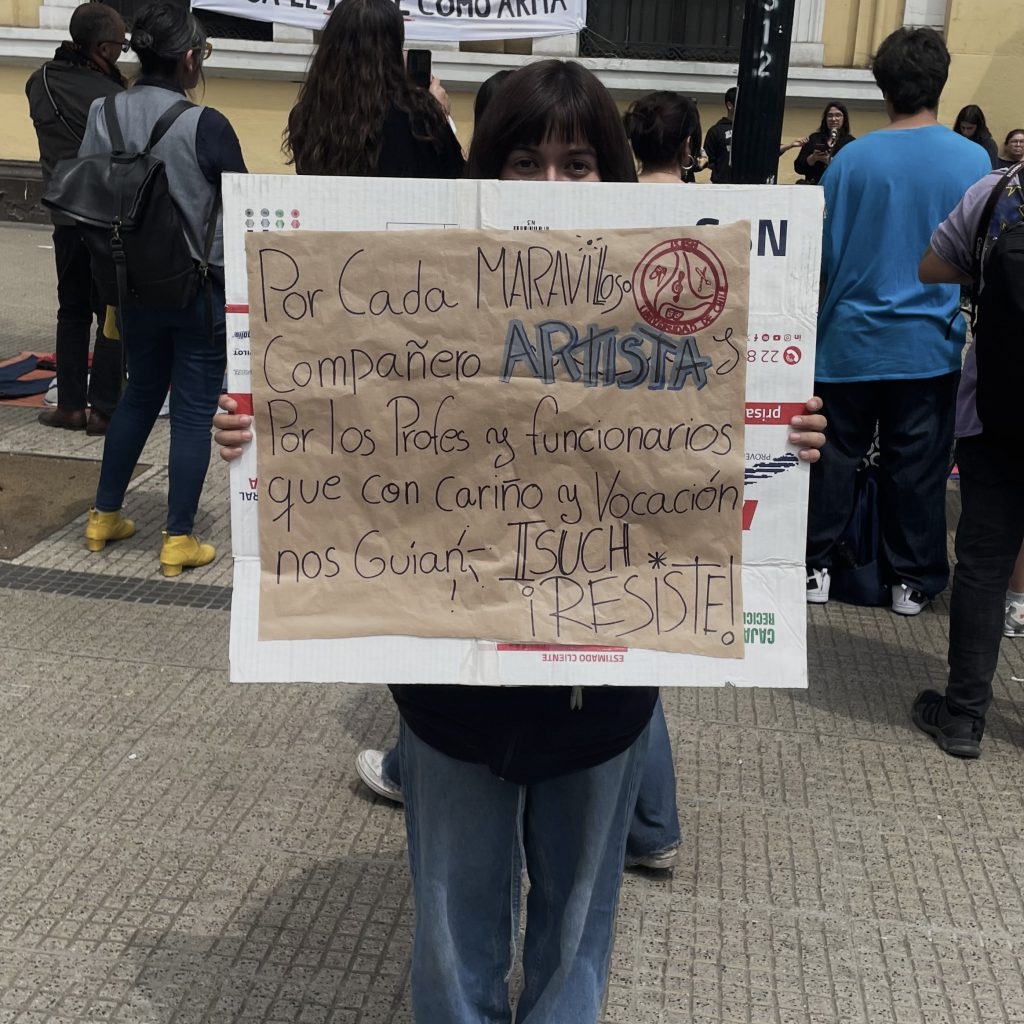 COMO ARMA
512
Por Cada MARAVILLOSO
Compañero ARTISTA y
Por los Profes y funcionarios
que con Cariño y Vocación
nos Guian ISUCH
¡RESISTE!
UNIVERSIDAD DE CHILE
prisa
22 8
CAJA
RECICL
ESTIMADO CLIENTE